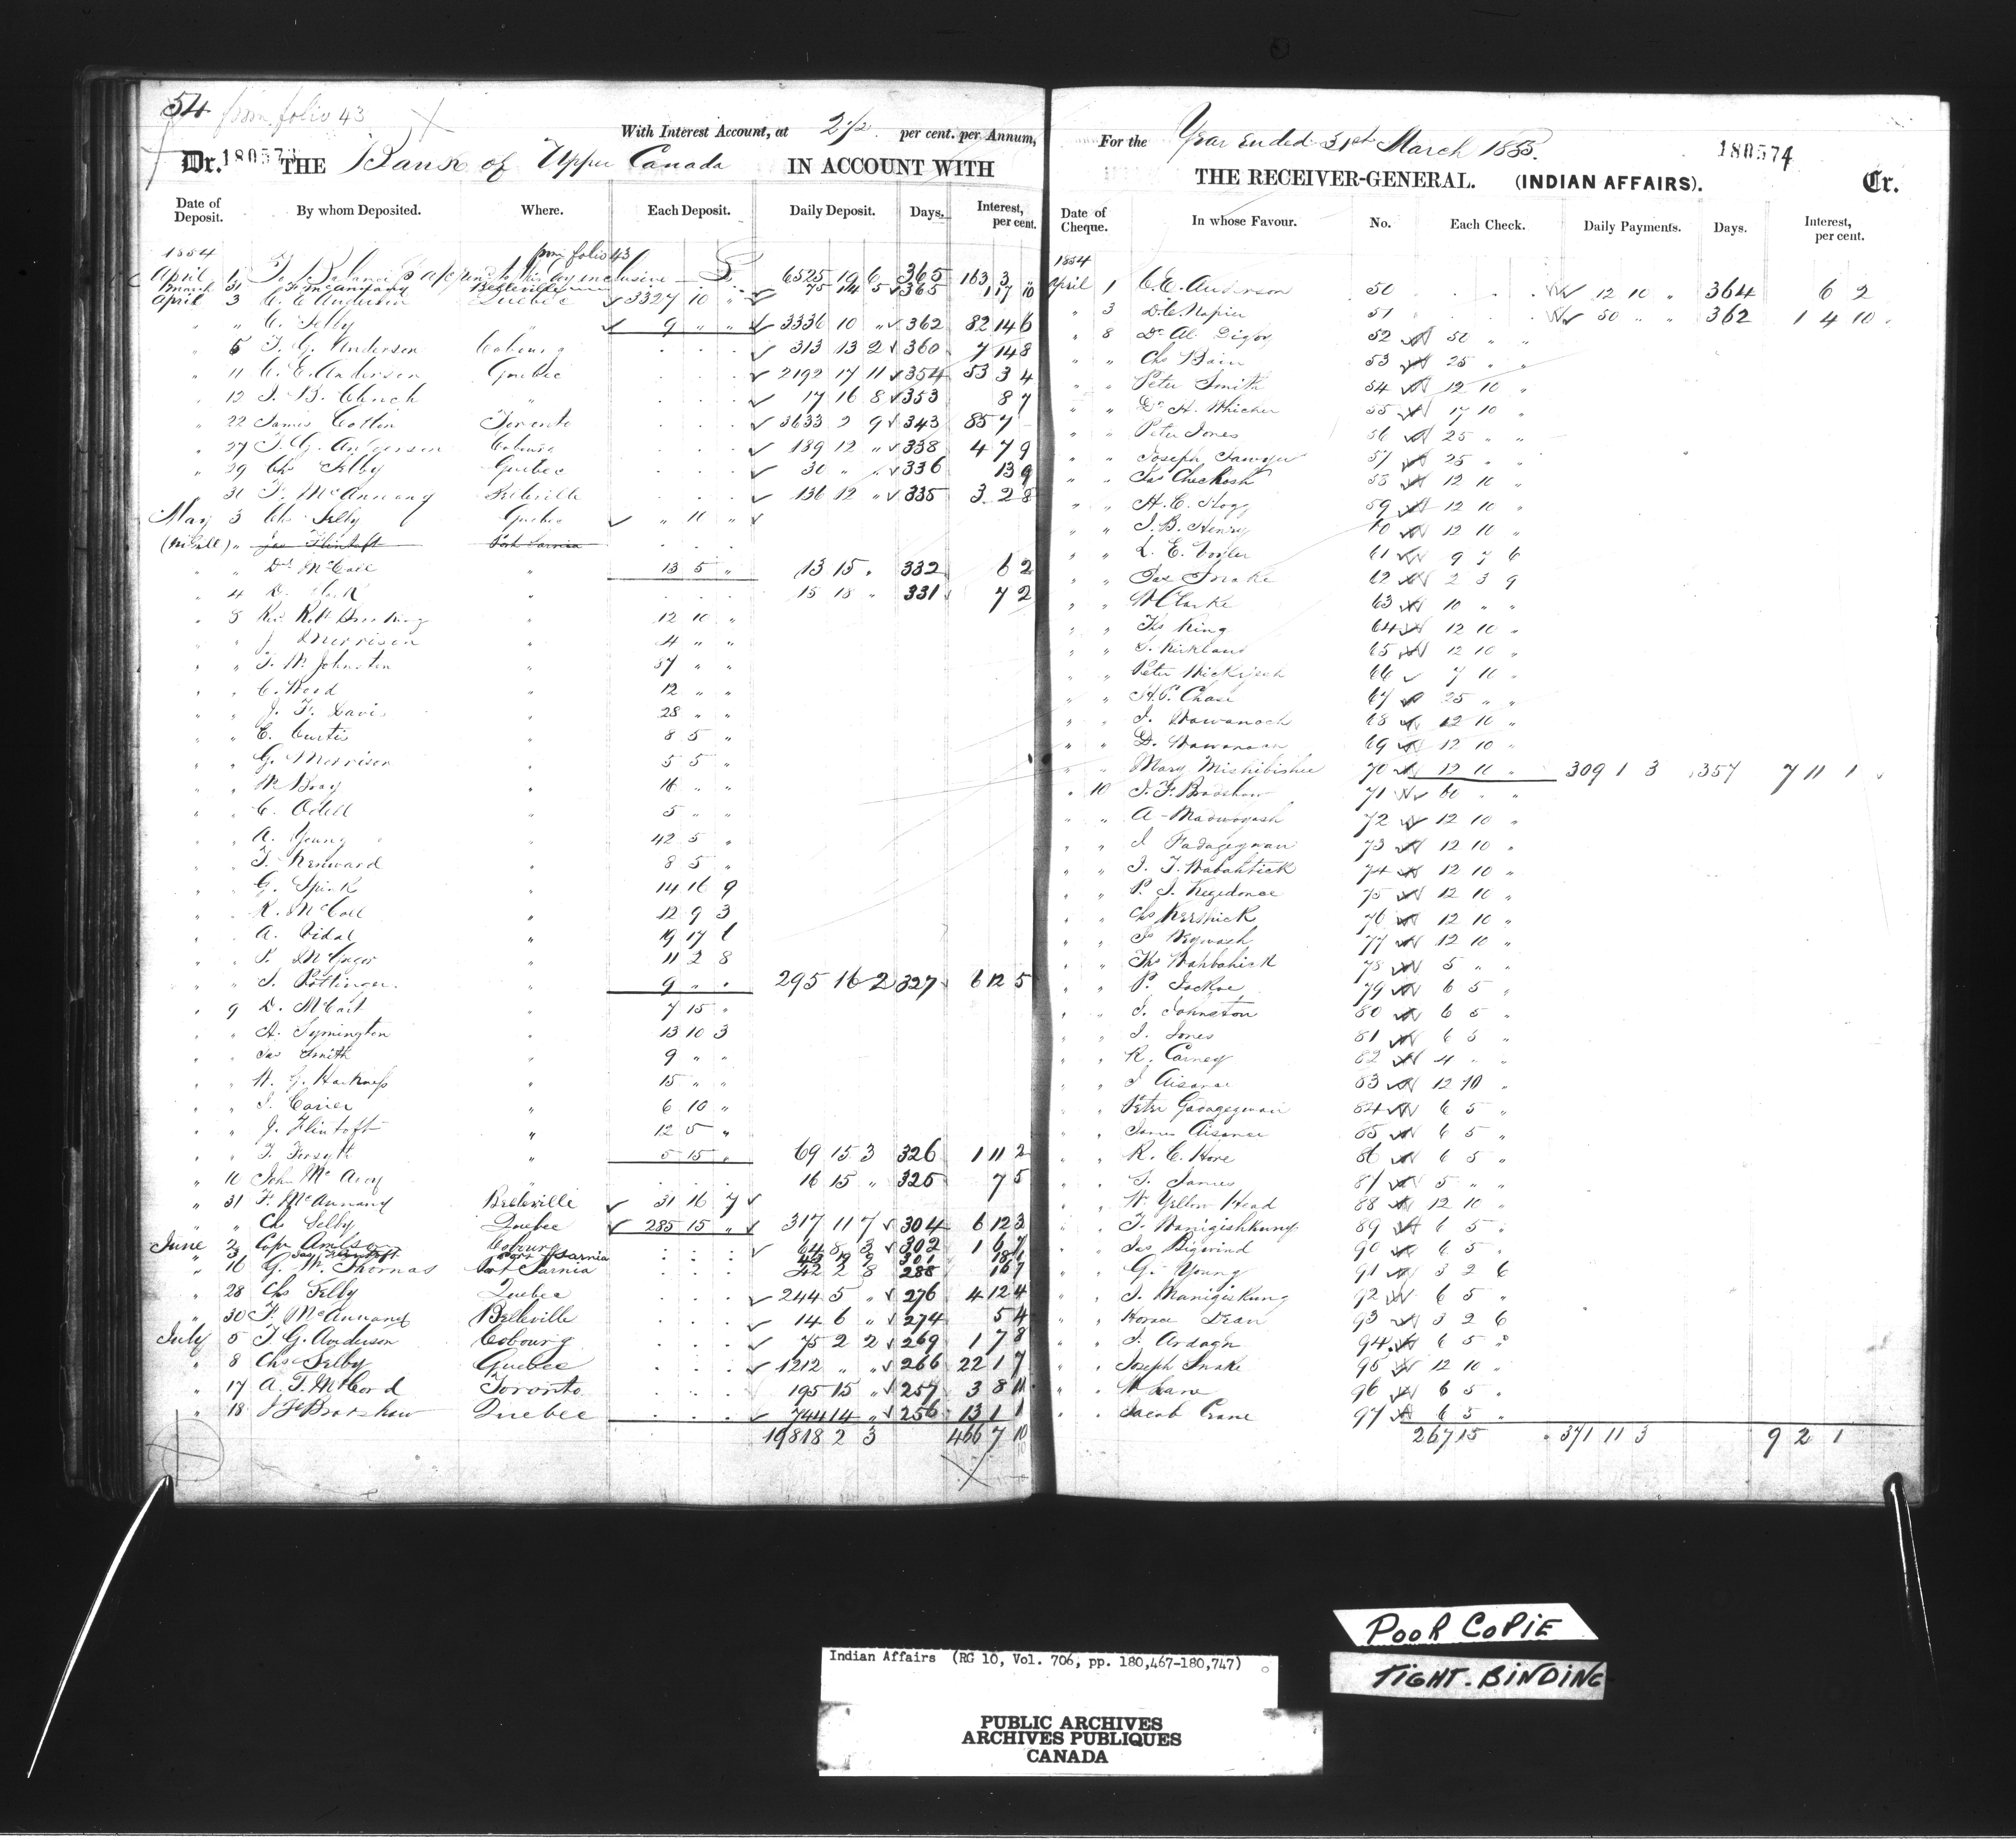 54 from folio 43
With Interest Account, at 2 1/2 per cent. per Annum,
Dr. 180573 THE Bank of Upper Canada IN ACCOUNT WITH
Date of Deposit. By whom Deposited. Where. Each Deposit. Daily Deposit. Days. Interest, per cent.
1854 from folio 43
April 1 To Balance inclusive 6525 19 6 365 163 3 "
March 31 F. McAnnany Belleville 75 14 5 365 1 17 10
April 3 C. E. Anderson Quebec 3327 10 "
" " C. Selby " 9 " " 3336 10 " 362 82 14 6
" 5 T. G. Anderson Cobourg 313 13 2 360 7 14 8
" 11 C. E. Anderson Quebec 2192 17 11 354 53 3 4
" 12 J. B. Clench " 17 16 8 353 8 7
" 22 James Cotton Toronto 3633 2 9 343 85 7
" 27 T. G. Anderson Cobourg 189 12 " 338 4 7 9
" 29 Chs Selby Quebec 30 " " 336 13 9
" 31 F. McAnnany Belleville 136 12 " 335 3 2 8
May 3 Chs Selby Quebec " 10 "
(McCall) " Jas Flintoft Port Sarnia
" " D. McCall " 13 5 " 13 15 " 332 6 2
" 4 D. " 15 18 " 331 7 2
" 5 Rev. Robt " 12 10 "
" " J. Morrison " 4 " "
" " T. W. Johnston " 57 " "
" " C. Wood " 12 " "
" " J. F. Davis " 28 " "
" " E. Curtis " 8 5 "
" " G. Morrison " 5 5 "
" " W. Bray " 16 " "
" " C. Odell " 5 " "
" " A. Young " 42 5 "
" " T. Kenward " 8 5 "
" " G. Spink " 14 16 9
" " R. McCall " 12 9 3
" " A. Vidal " 19 17 6
" " P. " 11 2 8
" " J. Pottinger " 9 " " 295 16 2 327 6 12 5
" 9 D. McCart " 7 15 "
" " A. Symington " 13 10 3
" " Jas Smith " 9 " "
" " W. G. Harkness " 15 " "
" " J. Carrier " 6 10 "
" " J. Flintoft " 12 5 "
" " T. Forsyth " 5 15 " 69 15 3 326 1 11 2
" 10 John Mc Avey " 16 15 " 325 7 5
" 31 F. McAnnany Belleville 31 16 7
" " Chs Selby Quebec 285 15 " 317 11 7 304 6 12 3
June 2 Capt Anderson Cobourg 64 8 3 302 1 6 7
" 3 Jas Flintoft Port Sarnia 43 19 9 301 18 1
" 16 G. W. Thomas Port Sarnia 42 2 8 288 16 7
" 28 Chs Selby Quebec 244 5 " 276 4 12 4
" 30 F. McAnnany Belleville 14 6 " 274 5 4
July 5 T. G. Anderson Cobourg 75 2 2 269 1 7 8
" 8 Chs Selby Quebec 1212 " " 266 22 1 7
" 17 A. T. McCord Toronto 195 15 " 257 3 8 11
" 18 J F Bradshaw Quebec 744 14 " 256 13 1 1
19818 2 3 466 7 10
For the Year Ended 31st March 1855. 180574
THE RECEIVER-GENERAL. (INDIAN AFFAIRS). Cr.
Date of Cheque. In whose Favour. No. Each Check. Daily Payments. Days. Interest, per cent.
1854
April 1 C. E. Anderson 50 12 10 " 364 6 2
" 3 D. C. Napier 51 50 " " 362 1 4 10
" 8 Dr Al. Digby 52 50 " "
" " Chs Bain 53 25 " "
" " Peter Smith 54 12 10 "
" " Dr H. Whicher 55 17 10 "
" " Peter Jones 56 25 " "
" " Joseph Sawyer 57 25 " "
" " Jas Chechosh 58 12 10 "
" " H. C. Hogg 59 12 10 "
" " J. B. Henry 60 12 10 "
" " L. E. 61 9 7 6
" " Jas Snake 62 2 3 9
" " W Clarke 63 10 " "
" " Ths King 64 12 10 "
" " S. Kirkland 65 12 10 "
" " Peter 66 7 10 "
" " H. P. Chase 67 25 " "
" " J. Wawanoch 68 12 10 "
" " D. Wawanoch 69 12 10 "
" " Mary Mishibishee 70 12 10 " 309 1 3 357 7 11 1
" 10 J. F. Bradshaw 71 60 " "
" " A Madwayash 72 12 10 "
" " J Fadagegwan 73 12 10 "
" " J. T. Wabahtick 74 12 10 "
" " P. J. Kegedonce 75 12 10 "
" " Chs Keeshick 76 12 10 "
" " Js Newash 77 12 10 "
" " Ths Wahbahick 78 5 " "
" " P. Jackoe 79 6 5 "
" " J. Johnston 80 6 5 "
" " J. Jones 81 6 5 "
" " R. Carney 82 4 " "
" " J Aisance 83 12 10 "
" " Peter Gadagegwan 84 6 5 "
" " James Aisance 85 6 5 "
" " R. C. Hore 86 6 5 "
" " S. James 87 5 " "
" " W. Yellow Head 88 12 10 "
" " J. Nanigishkung 89 6 5 "
" " Jas Bigwind 90 6 5 "
" " G. Young 91 3 2 6
" " J. Nanigiskung 92 6 5 "
" " Horace Dean 93 3 2 6
" " J. Ardagh 94 6 5 "
" " Joseph Snake 95 12 10 "
" " W Lane 96 6 5 "
" " Jacob Crane 97 6 5 "
267 15 371 11 3 9 2 1
POOR COPIE
TIGHT-BINDING
Indian Affairs (RG 10, Vol. 706, pp. 180,467-180,747)
PUBLIC ARCHIVES
ARCHIVES PUBLIQUES
CANADA